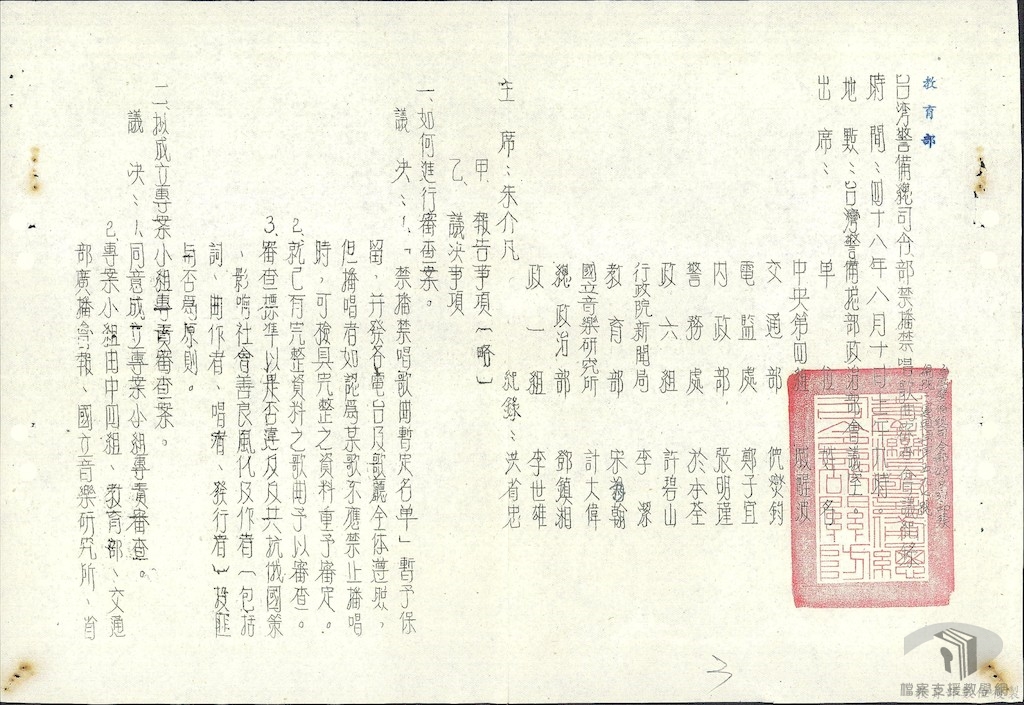 教育部
台灣警備總司令部禁播禁唱歌曲審查會議紀錄
時間：四十八年八月十日上午九時。
地點：台灣警備總部政治部會議室。
出席：單位 姓名
中央第四組 戚醒波
交通部
電監處 鄭子宜
內政部 張明瑾
警務處 於本荃
政六組 許碧山
行政院新聞局 李潔
教育部
國立音樂研究所 計大偉
總政治部 鄧鎮湘
政一組 李世雄
主席：朱介凡 紀錄：洪省忠
甲、報告事項（略）
乙、議決事項
一、如何進行審查案。
議決：1.「禁播禁唱歌曲暫定名單」暫予保
留，并發各電台及歌廳全体遵照，
但播唱者如認為某歌不應禁止播唱
時，可檢具完整之資料重予審定。
2.就已有完整資料之歌曲予以審查。
3.審查標準以是否違反反共抗俄國策
、影响社會善良風化及作者（包括
詞、曲作者、唱者、發行者）投匪
與否為原則。
二、擬成立專案小組專責審查案。
議決：1.同意成立專案小組專責審查。
2.專案小組由中四組、教育部、交通
部廣播學報、國立音樂研究所、省
檔案支援教學網